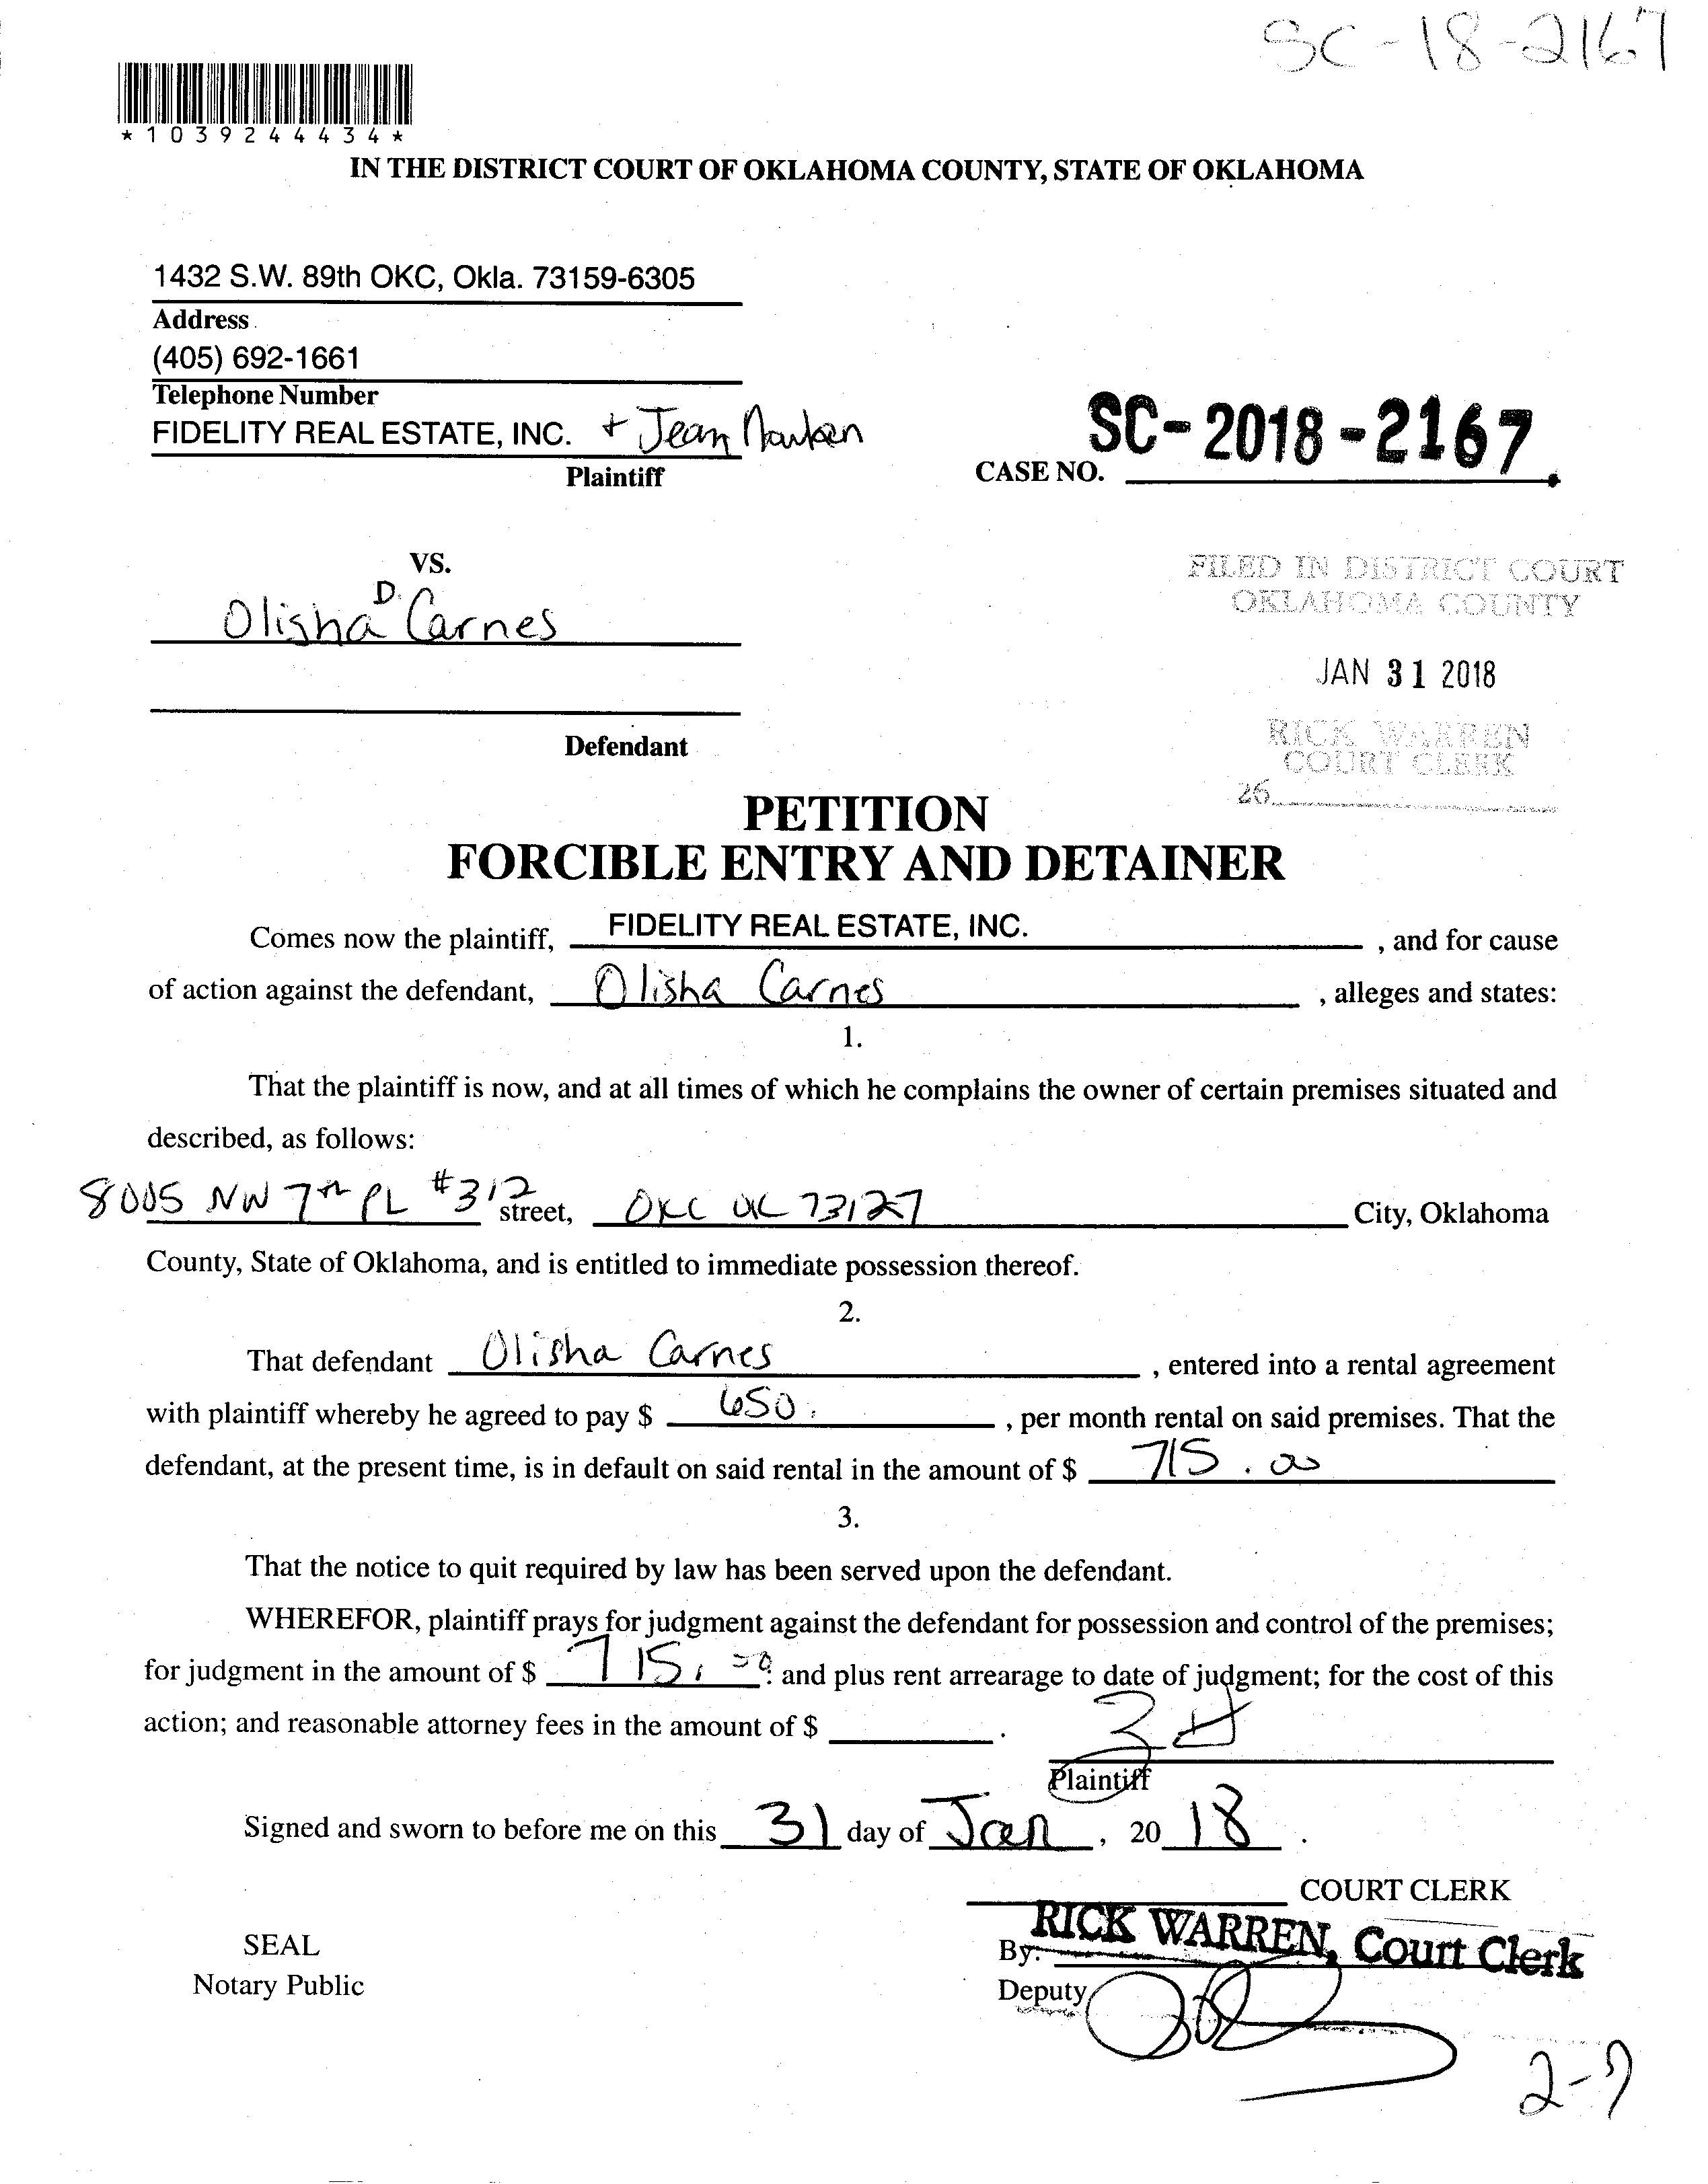 SC-18-2167
*1039244434*
IN THE DISTRICT COURT OF OKLAHOMA COUNTY, STATE OF OKLAHOMA
1432 S.W. 89th OKC, Okla. 73159-6305
Address
(405) 692-1661
Telephone Number
FIDELITY REAL ESTATE, INC. + Jean
Plaintiff
SC-2018-2167
CASE NO.
VS.
Olisha D. Carnes
Defendant
FILED IN DISTRICT COURT
OKLAHOMA COUNTY
JAN 31 2018
RICK WARREN
COURT CLERK
26
PETITION
FORCIBLE ENTRY AND DETAINER
Comes now the plaintiff, FIDELITY REAL ESTATE, INC. , and for cause
of action against the defendant, Olisha Carnes , alleges and states:
1.
That the plaintiff is now, and at all times of which he complains the owner of certain premises situated and
described, as follows:
8005 NW 7th PL #312 street, OKC OK 73127 City, Oklahoma
County, State of Oklahoma, and is entitled to immediate possession thereof.
2.
That defendant Olisha Carnes , entered into a rental agreement
with plaintiff whereby he agreed to pay $ 650. , per month rental on said premises. That the
defendant, at the present time, is in default on said rental in the amount of $ 715.00
3.
That the notice to quit required by law has been served upon the defendant.
WHEREFOR, plaintiff prays for judgment against the defendant for possession and control of the premises;
for judgment in the amount of $ 715.00 and plus rent arrearage to date of judgment; for the cost of this
action; and reasonable attorney fees in the amount of $ .
Plaintiff
Signed and sworn to before me on this 31 day of Jan , 20 18 .
COURT CLERK
RICK WARREN, Court Clerk
By:
SEAL
Notary Public
Deputy
2-9